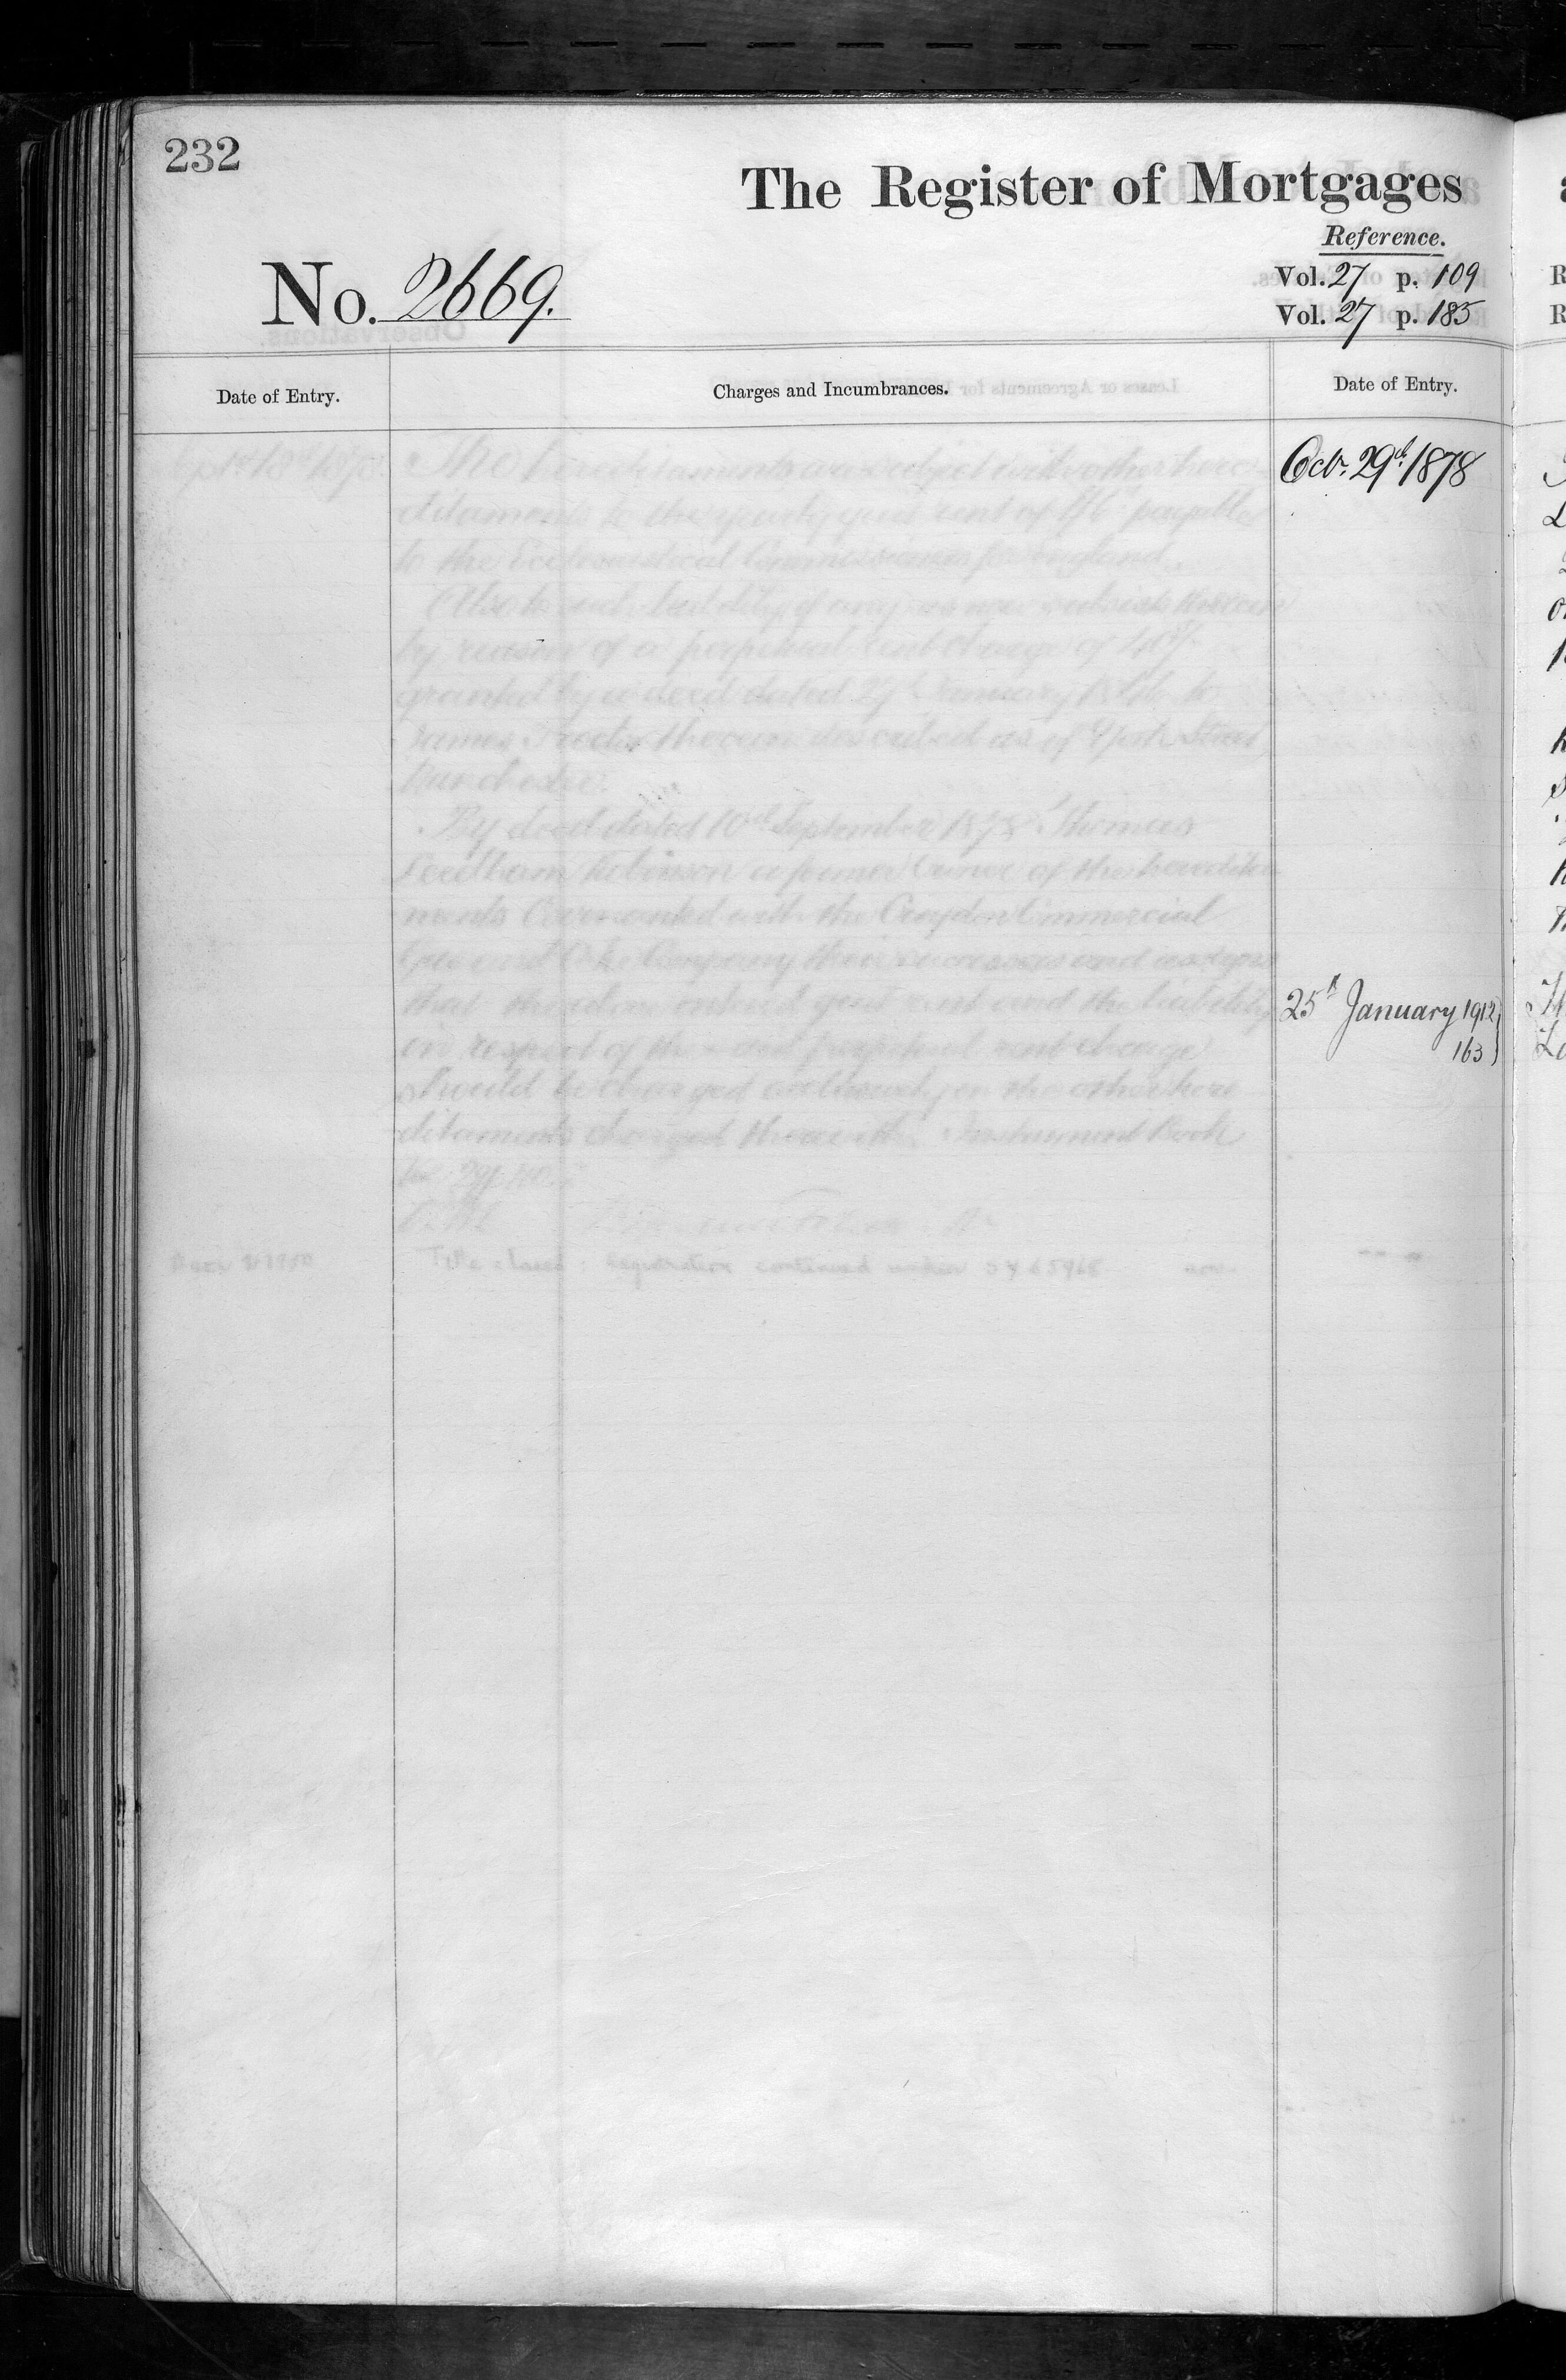 232
The Register of Mortgages
Reference.
No. 2669.
Vol. 27 p. 109
Vol. 27 p. 185
Date of Entry.
Charges and Incumbrances.
Date of Entry.
The hereditaments are subject with other here-
ditaments to the yearly quit rent of payable
to the Ecclesiastical Commissioners for England.
Also to such liability if any as now subsists thereon
by reason of a perpetual rent charge of
granted by a deed dated January to
James therein described as of York Street,
By deed dated 10th September 1878 Thomas
Robinson a former owner of the heredita
ments Covenanted with the Croydon Commercial
Gas and Coke Company their successors and assigns
that the quit rent and the liability
in respect of the said perpetual rent charge
should be charged exclusively on the other here
ditaments charged therewith. Instrument Book
Title closed: Registration continued under SY 65968
Octr. 29th 1878
25th January 1912
163